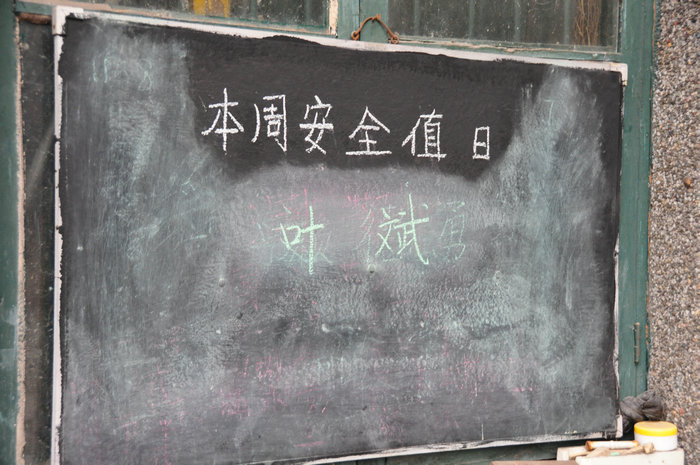 本周安全值日
叶斌